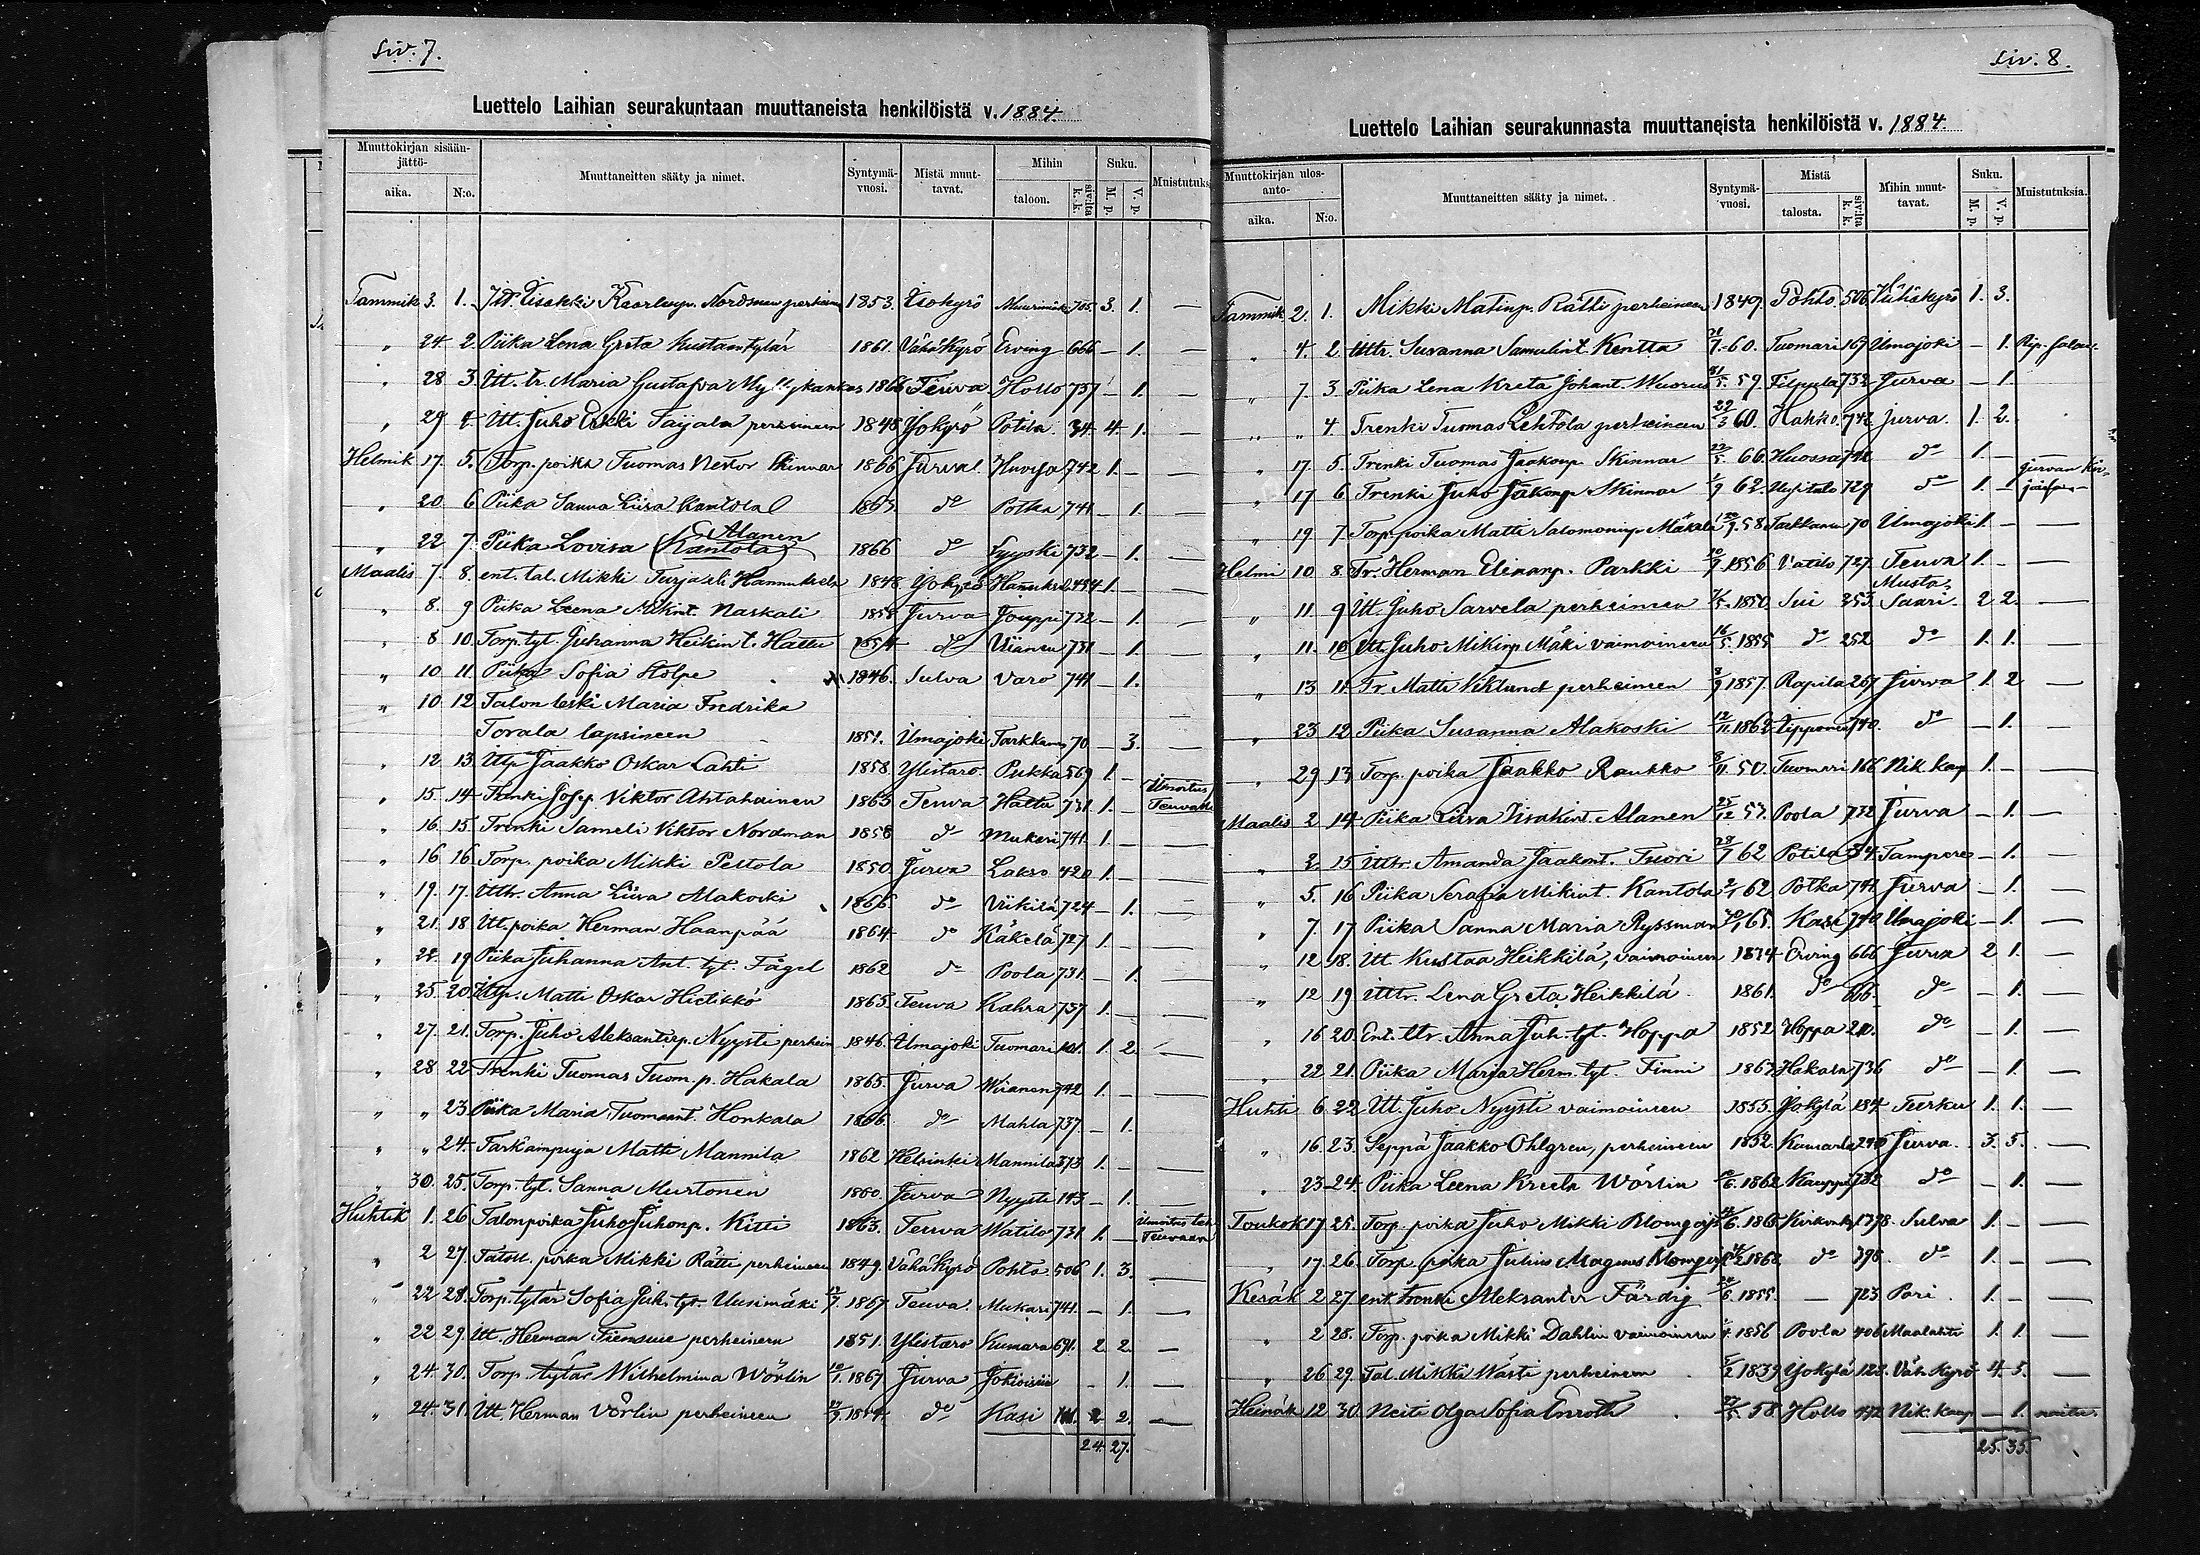 Siv. 7.
Luettelo Laihian seurakuntaan muuttaneista henkilöistä v. 1884.
Muuttokirjan sisään-jättö- aika. N:o. Muuttaneitten sääty ja nimet. Syntymä-vuosi. Mistä muut-tavat. Mihin taloon. k. k. sivulta Suku. M. p. V. p. Muistutuks
Tammik 3. 1. Itt. Iisakki Kaarlenp. Nordman perheineen 1853. Isokyrö 705. 3. 1. —
" 24. 2. Piika Lena Greta Kustaantytär 1861. Vähäkyrö Erving 666 — 1. —
" 28 3. Itt. tr. Maria Gustafva Myllykankas 1866 Teuva Hollo 737 — 1. —
" 29 4. Itt. Juho Erkki Taijala perheineen 1848 Yokyrö Potila 34 4 1. —
Helmik 17. 5. Torp. poika Tuomas Nestor Skinnar 1866 Jurva Huossa 742 1. — —
" 20 6 Piika Sanna Liisa Kantola 1863 do Potka 741 — 1. —
" 22 7. Piika Lovisa (Kantola) Alanen 1866 do 732 — 1. —
Maalis 7. 8. ent. tal. Mikki Turja eli Hannuksela 1848 Yokyrö Hanuksela 494 1. — —
" 8. 9 Piika Leena Mikint. Naskali 1858 Jurva Jouppi 732 — 1. —
" 8 10. Torp. tyt. Juhanna Heikint. Hattu 1854 do Viianen 731 — 1. —
" 10 11. Piika Sofia Stolpe 1846. Sulva Varo 741 — 1. —
" 10 12 Talon leski Maria Fredrika
Torala lapsineen 1851. Ilmajoki Tarkkanen 70 — 3. —
" 12 13. Ittp Jaakko Oskar Lahti 1858. Ylistaro Pukka 569 1. —
" 15. 14 Trenki Josep. Viktor Ahtahainen 1863 Teuva Hattu 731 1. — Ilmoitus Teuvalle
" 16. 15. Trenki Sameli Viktor Nordman 1858 do Mukeri 741. 1. — —
" 16 16 Torp. poika Mikki Pertola 1850 Jurva Lakso 420 1. — —
" 19. 17. Ittr. Anna Liisa Alakoski 1866 do Viikilä 724 — 1. —
" 21. 18. Itt. poika Herman Haanpää 1864 do Käkelä 727 1. — —
" 22 19 Piika Juhanna Ant. tyt. Fågel 1862 do Poola 731. — 1. —
" 25. 20 Ittp. Matti Oskar Hietikkö 1865. Teuva Kahra 737 1. — —
" 27. 21. Torp. Juho Aleksanterip. Nyysti perhein 1846. Ilmajoki Tuomari 101. 1. 2. —
" 28 22 Trenki Tuomas Tuom. p. Hakala 1865. Jurva Wiianen 742 1. — —
" " 23 Piika Maria Tuomaant. Honkala 1866. do Mahla 737 — 1. —
" " 24. Tarkampuja Matti Mannila 1862 Helsinki Mannila 373 1. — —
" 30. 25. Torp. tyt. Sanna Murtonen 1860. Jurva Nyysti 143 — 1. —
Huhtik 1. 26 Talonpoika Juho Juhonp. Kitti 1863. Teuva Watilo 731 1. — Ilmoitus Teuvaan
" 2 27. Talon poika Mikki Rätti perheineen 1849. Vähäkyrö Pohto 506 1. 3. —
" 22 28. Torp. tytär Sofia Juh. tyt. Uusimäki 1867 Teuva Mukari 741. — 1. —
" 22 29. Itt. Herman Tiensuu perheineen 1851. Ylistaro Kumara 691. 2 2. —
" 24. 30. Torp. tytär Wilhelmina Wörlin 10/1. 1867 Jurva — 1. —
" 24. 31. Itt. Herman Vörlin perheineen 1854 do Kasi 2 2. —
24. 27.
Siv. 8.
Luettelo Laihian seurakunnasta muuttaneista henkilöistä v. 1884.
Muuttokirjan ulos-anto- aika. N:o. Muuttaneitten sääty ja nimet. Syntymä-vuosi. Mistä talosta. k. k. sivulta Mihin muut-tavat. Suku. M. p. V. p. Muistutuksia.
Tammik 2. 1. Mikki Matinp. Rätti perheineen 1849. Pohto 506 Vähäkyrö 1. 3.
" 4. 2. Ittr. Susanna Samulint. Kentta 60. Tuomari 167 Ilmajoki — 1.
" 7. 3 Piika Lena Kreta Johant. Wuorus 31/5. 59. Filpula 732 Jurva — 1.
" " 4. Trenki Tuomas Lehtola perheineen 22/3 60. Hakko 742 Jurva. 1. 2.
" 17. 5. Trenki Tuomas Jaakonp Skinnar 22/5. 66. Huossa 742 do 1. —
" 17 6 Trenki Juho Jakonp Skinnar 1/9 62. Uusitalo 729 do 1. — Jurvan
" 19 7. Torp. poika Matti Salomoninp Mäkelä 58 Tarkkanen 70 Ilmajoki 1. — —
Helmi 10 8. Tr. Herman Elianp. Parkki 10/9 1856 Vatilo 727 Teuva 1. — —
" 11 9 Itt. Juho Sarvela perheineen 1850. Sui 253. Mustasaari. 2 2. —
" 11. 10 Itt. Juho Mikinp Mäki vaimoineen 16/5. 1855 do 252 do 1. 1.
" 13 11. Tr. Matti Viklund perheineen 8/9 1857. Rapila 267 Jurva 1. 2 —
" 23 12 Piika Susanna Alakoski 12/11. 1862 740. do — 1. —
" 29 13. Torp. poika Jaakko Raukko 8/11. 50. Tuomari 166 Nik. kap 1. — —
Maalis 2 14 Piika Liisa Iisakint. Alanen 25/12 57. Poola 732 Jurva — 1. —
" 2. 15. Ittr. Amanda Jaakont. Tuori 62 Potila 34. Tampere — 1. —
" 5. 16 Piika Serafia Mikint. Kantola 62 Potka 741 Jurva — 1. —
" 7. 17 Piika Sanna Maria Ryssman 65. Kasi 740 Ilmajoki — 1. —
" 12 18. Itt. Kustaa Heikkilä, vaimoineen 1834 Erving 666 Jurva 2 1. —
" 12 19 Ittr. Lena Greta Heikkilä 1861. do 666. do — 1. —
" 16 20. Ent. ttr. Anna Juh. tyt. Hoppa 1852. Hoppa 210. do — 1. —
" 22 21. Piika Marja Herm. tyt. Finni 1867. Hakala 736 do — 1. —
Huhti 6 22 Itt. Juho Nyysti vaimoineen 1855. Yokylä 184 Turku 1. 1. —
" 16. 23. Seppä Jaakko Ohlgren, perheineen 1832. Kumarla 290 Jurva. 3. 5. —
" 23 24. Piika Leena Kreeta Wörlin 1862. Kauppi 732 do — 1. —
Toukok 17 25. Torp. poika Juho Mikki Blomqvist 1865 398. Sulva 1. — —
" 17. 26. Torp. poika Julius Magnus Blomqvist 1862 do 398. do 1. — —
Kesäk 2 27 ent. trenki Aleksanter Färdig 1855. — 723 Pori. 1. — —
" 2 28. Torp. poika Mikki Dahlin vaimoineen 1856 Poola 406 Maalahti 1. 1. —
" 26 29. Tal. Mikki Wästi perheineen 1839 Yokylä 122. Väh. Kyrö 4. 5. —
Heinäk 12 30. Neiti Olga Sofia Enroth 58 Hollo 472 Nik. kaup — 1. naitu.
25. 35.